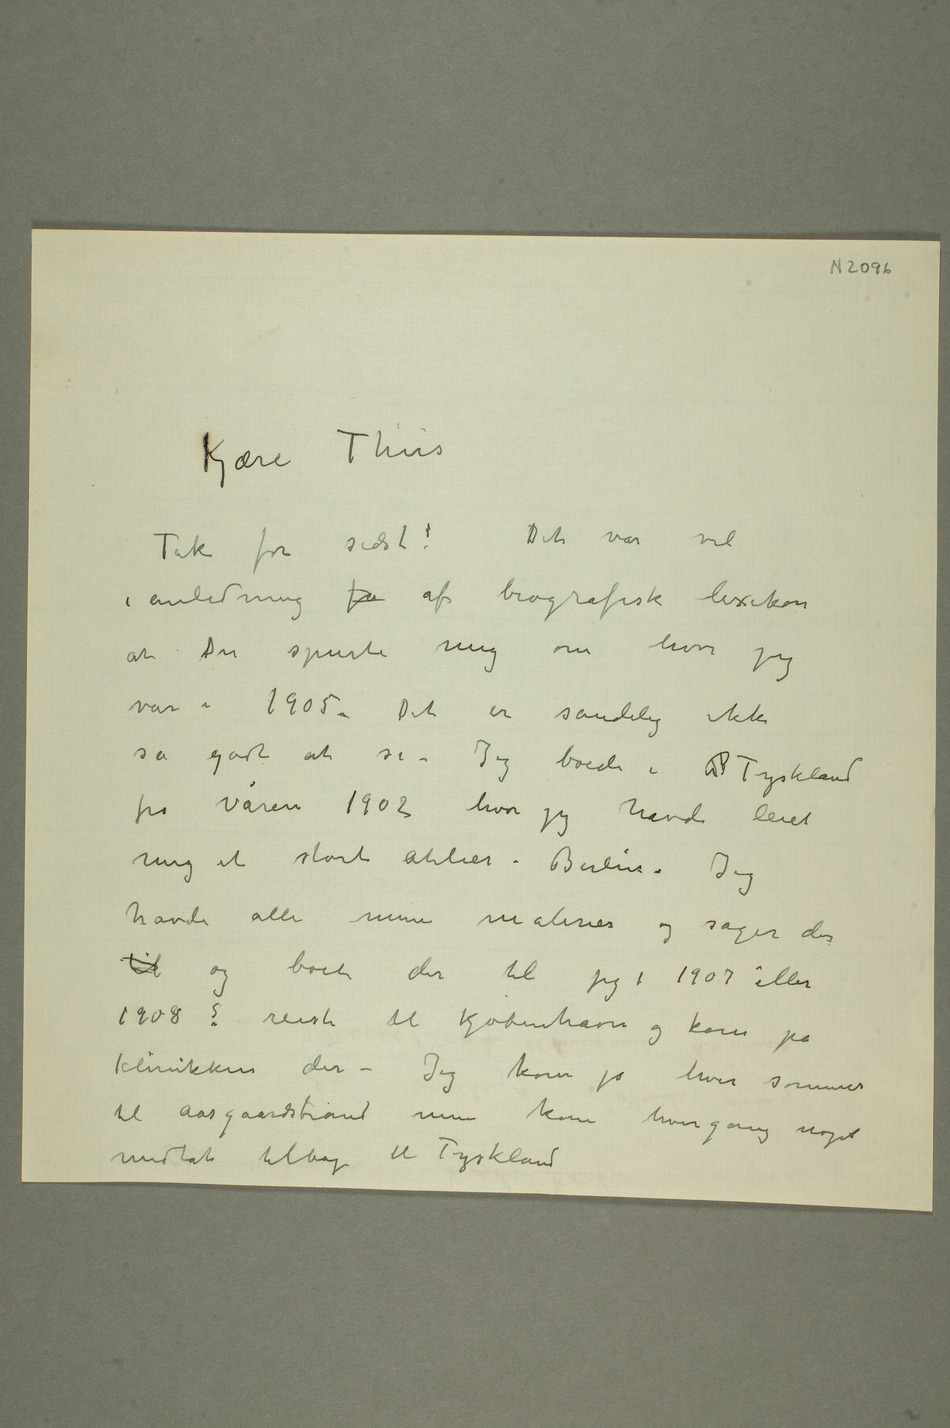 N 2096
Kjære Thiis
Tak for sidst! Det var vel
i anledning fa af biografisk lexikon
at Du spurte mig om hvor jeg
var i 1905. Det er sandelig ikke
så godt at si – Jeg boede i Tyskland
fra våren 1902 hvor jeg havde leiet
mig et stort atelier – Berlin. Jeg
havde alle mine malerier og sager der
til og boete der til jeg i 1907 eller
1908 ? reiste til Kjøbenhavn og kom på
klinikken der – Jeg kom jo hver sommer
til Aasgaardstrand men kom hvergang noget
medtat tilbage til Tyskland